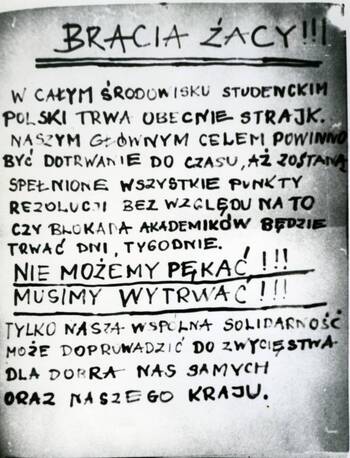 BRACIA ŻACY!!!
W CAŁYM ŚRODOWISKU STUDENCKIM
POLSKI TRWA OBECNIE STRAJK.
NASZYM GŁÓWNYM CELEM POWINNO
BYĆ DOTRWANIE DO CZASU, AŻ ZOSTANĄ
SPEŁNIONE WSZYSTKIE PUNKTY
REZOLUCJI BEZ WZGLĘDU NA TO
CZY BLOKADA AKADEMIKÓW BĘDZIE
TRWAĆ DNI, TYGODNIE.
NIE MOŻEMY PĘKAĆ!!!
MUSIMY WYTRWAĆ!!!
TYLKO NASZA WSPÓLNA SOLIDARNOŚĆ
MOŻE DOPRUWADZIĆ DO ZWYCIĘSTWA
DLA DOBRA NAS SAMYCH
ORAZ NASZEGO KRAJU.